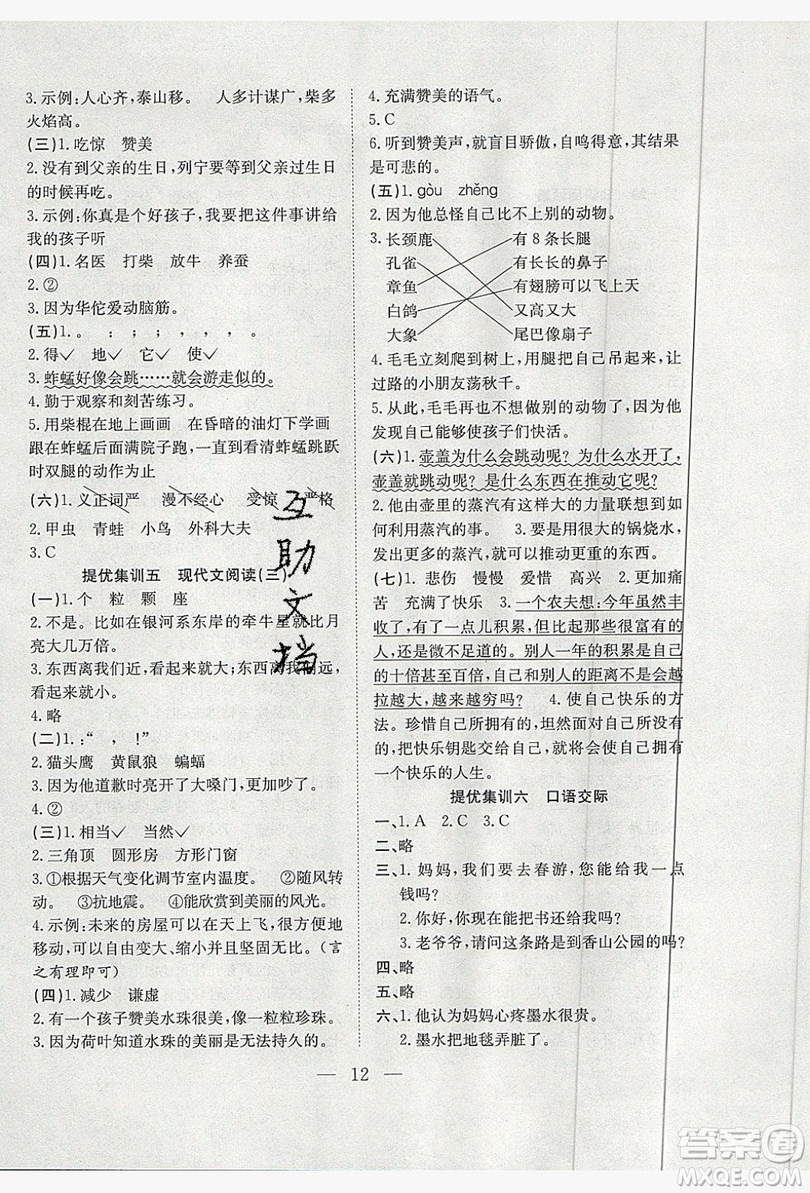 3. 示例:人心齐,泰山移。 人多计谋广,柴多
火焰高。
(三)1. 吃惊 赞美
2. 没有到父亲的生日,列宁要等到父亲过生日
的时候再吃。
3. 示例:你真是个好孩子,我要把这件事讲给
我的孩子听
(四)1. 名医 打柴 放牛 养蚕
2. ②
3. 因为华佗爱动脑筋。
(五)1. 。 ; ; , , , 。
2. 得✓ 地✓ 它✓ 使✓
3. 蚱蜢好像会跳……就会游走似的。
4. 勤于观察和刻苦练习。
5. 用柴棍在地上画画 在昏暗的油灯下学画
跟在蚱蜢后面满院子跑,一直到看清蚱蜢跳跃
时双腿的动作为止
(六)1. 义正词严 漫不经心 受惊 严格
2. 甲虫 青蛙 小鸟 外科大夫
3. C
提优集训五 现代文阅读(三)
(一)1. 个 粒 颗 座
2. 不是。比如在银河系东岸的牵牛星就比月
亮大几万倍。
3. 东西离我们近,看起来就大;东西离我们远,
看起来就小。
4. 略
(二)1. :“ , !”
2. 猫头鹰 黄鼠狼 蝙蝠
3. 因为他道歉时亮开了大嗓门,吵着大家了。
4. ②
(三)1. 相当✓ 当然✓
2. 三角顶 圆形房 方形门窗
3. ①根据天气变化调节室内温度。 ②随风转
动。 ③抗地震。 ④能欣赏到美丽的风光。
4. 示例:未来的房屋可以在天上飞,很方便地
移动,可以自由变大、缩小并且很坚固。(言
之有理即可)
(四)1. 减少 谦虚
2. 有一个孩子赞美水珠很美,像一粒粒珍珠。
3. 因为荷叶知道水珠的美丽是无法持久的。
4. 充满赞美的语气。
5. C
6. 听到赞美声,就盲目骄傲,自鸣得意,其结果
是可悲的。
(五)1. gòu zhěng
2. 因为他总怪自己比不上别的动物。
3. 长颈鹿 有 8 条长腿
孔雀 有长长的鼻子
章鱼 有翅膀可以飞上天
白鸽 又高又大
大象 尾巴像扇子
4. 毛毛立刻爬到树上,用腿把自己吊起来,让
过路的小朋友荡秋千。
5. 从此,毛毛再也不想羡慕别的动物了,因为他
能够使孩子们快活。
(六)1. 壶盖为什么会跳动呢?为什么水开了,
壶盖就会跳动呢?是什么东西在推动它呢?
2. 他由壶里的蒸汽有这样大的力量联想到如
何利用蒸汽的事。 3. 要是用更多的锅烧水,
用更多的蒸汽,就可以推动更重的东西。
(七)1. 悲伤 慢慢 爱惜 高兴 2. 越来越痛
苦 充满了快乐 3. 一个农夫想:今年虽然丰
收了,有了一点儿积累,但比起那些很富有的
人,还是微不足道的。别人一年的积累是自己
的十倍甚至百倍,自己和别人的距离不是会越
拉越大,越来越穷吗? 4. 使自己快乐的方
法。珍惜自己所拥有的,坦然面对所没有的,
并把快乐钥匙交给自己,就将会使自己拥有
一个快乐的人生。
提优集训六 口语交际
一、1. A 2. C 3. C
二、略
三、1. 妈妈,我们要去春游,您能给我一点
钱吗?
2. 你好,你现在能把书还给我吗?
3. 老爷爷,请问这条路是到香山公园的吗?
四、略
五、略
六、1. 他认为妈妈心疼墨水很贵。
2. 墨水把地毯弄脏了。
— 12 —
互助文档
答案圈
MXQE.COM